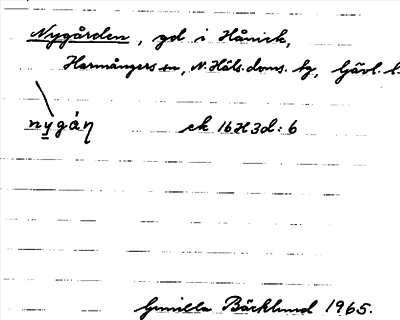 Nygården, gd i Hånick,
Harmångers sn, N. Häls. doms. tg, Gävl. l.
nygán ek 16H3d:6
Gunilla Bäcklund 1965.